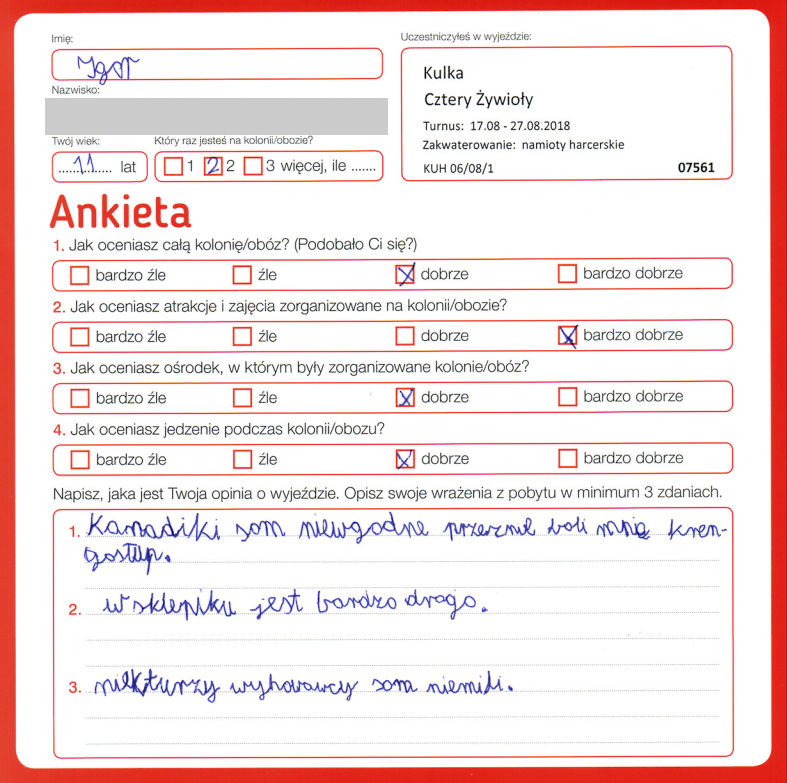 Imię:
Igor
Nazwisko:
Twój wiek:
11 lat
Który raz jesteś na kolonii/obozie?
1 2 2 3 więcej, ile .......
Uczestniczyłeś w wyjeździe:
Kulka
Cztery Żywioły
Turnus: 17.08 - 27.08.2018
Zakwaterowanie: namioty harcerskie
KUH 06/08/1 07561
Ankieta
1. Jak oceniasz całą kolonię/obóz? (Podobało Ci się?)
bardzo źle źle dobrze bardzo dobrze
2. Jak oceniasz atrakcje i zajęcia zorganizowane na kolonii/obozie?
bardzo źle źle dobrze bardzo dobrze
3. Jak oceniasz ośrodek, w którym były zorganizowane kolonie/obóz?
bardzo źle źle dobrze bardzo dobrze
4. Jak oceniasz jedzenie podczas kolonii/obozu?
bardzo źle źle dobrze bardzo dobrze
Napisz, jaka jest Twoja opinia o wyjeździe. Opisz swoje wrażenia z pobytu w minimum 3 zdaniach.
1. Kanadiki som niewgodne przeznie boli mnie kren-
gosłup.
2. w sklepiku jest bardzo drogo.
3. niekturzy wyhovawcy som niemili.